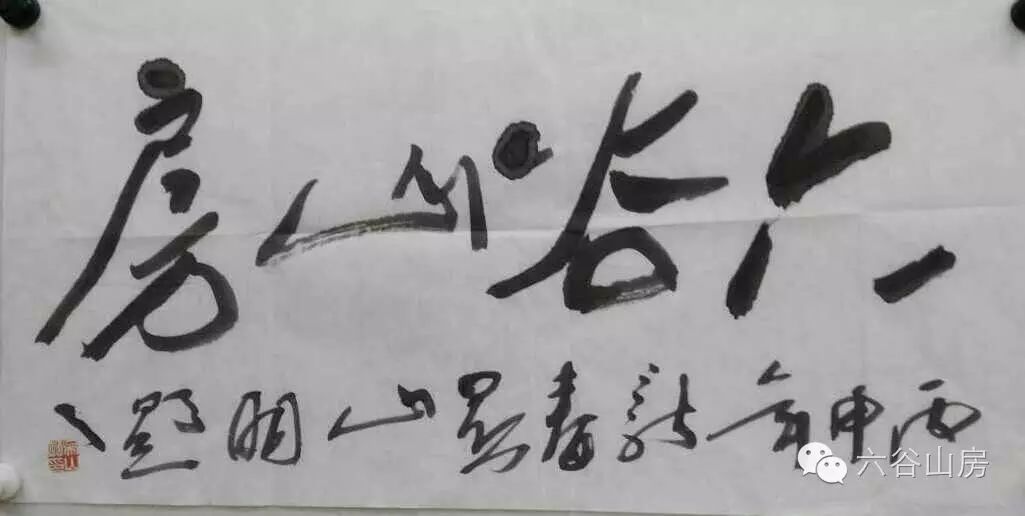 六谷山房
丙申年新春吴山明题
六谷山房